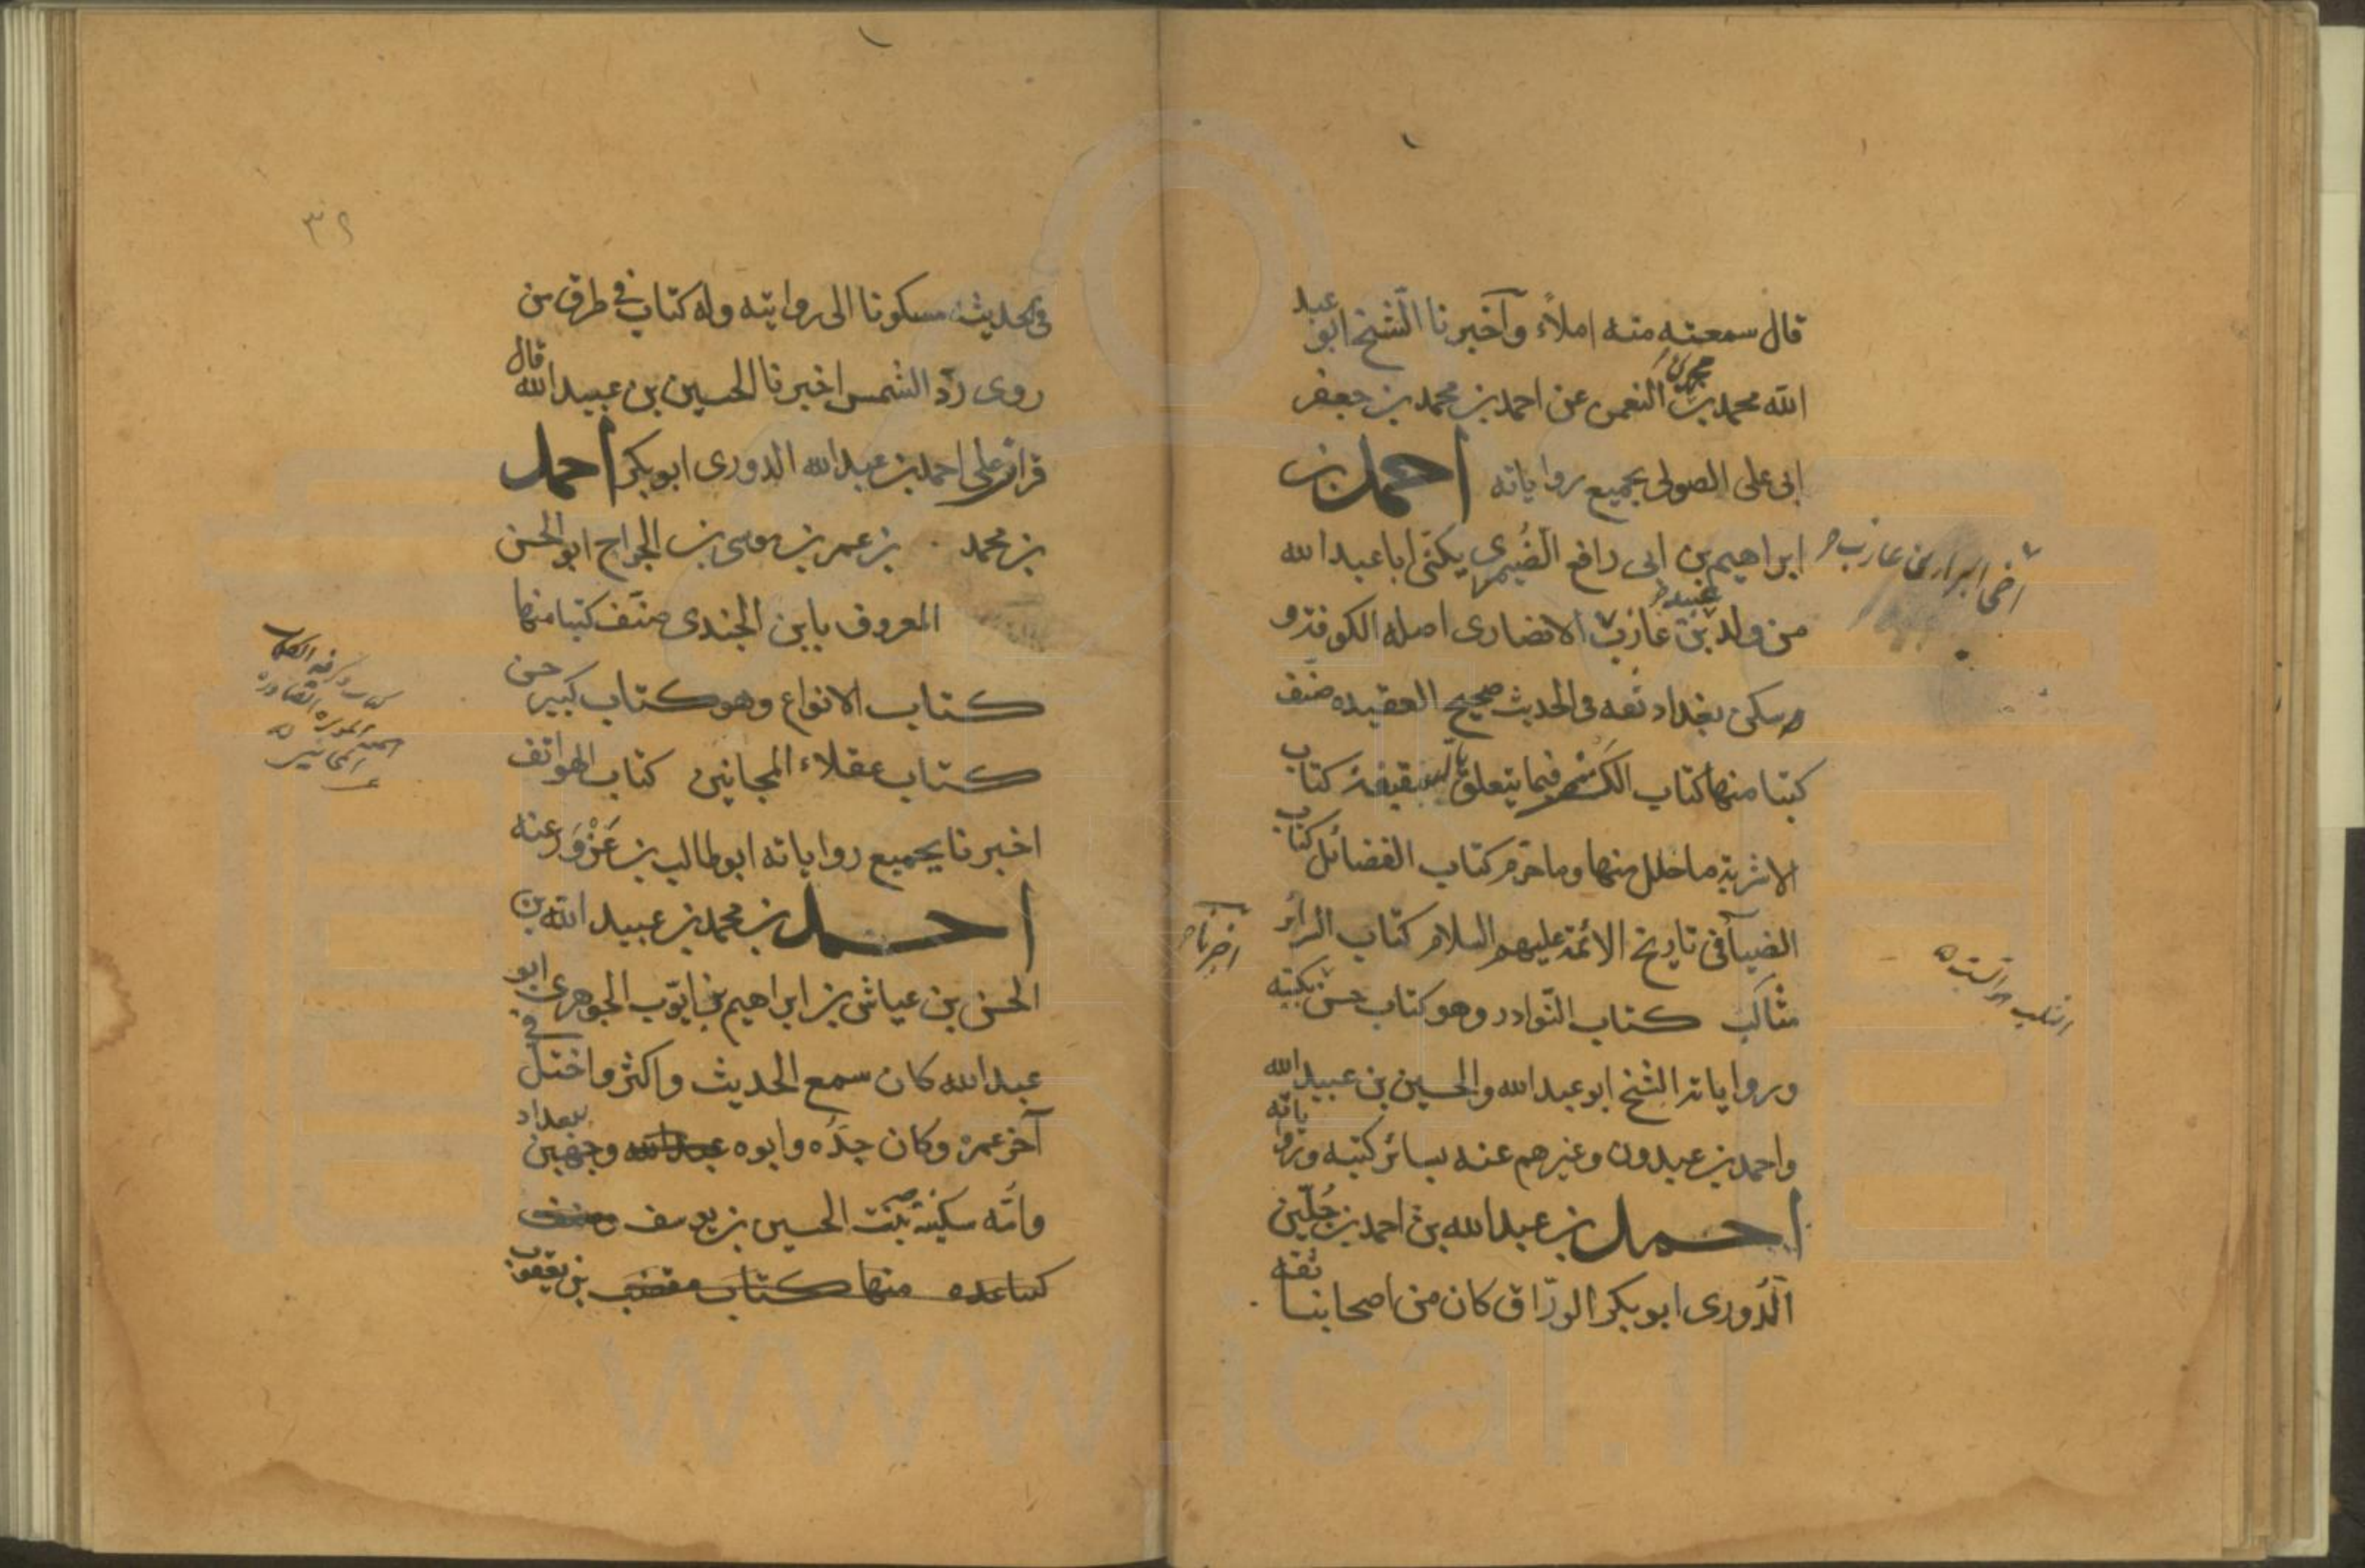 قال سمعته منه املاءً وآخبرنا الشيخ ابو عبد
الله محمد بن محمد بن النعمن عن احمد بن محمد بن جعفر
ابى على الصولى بجميع رواياته احمد بن
ابراهيم بن ابى رافع الصُيمرى يكنّى ابا عبد الله
من ولد عبيد بن عازب الانصارى اصله الكوفة و
سكن بغداد ثقه فى الحديث صحيح العقيده صنّف
كتبا منها كتاب الكشف فيما يتعلق بالسقيفة كتاب
الاشربة ما حلل منها وما حرّم كتاب الفضائل كتاب
الضيآ فى تاريخ الائمة عليهم السلام كتاب السرائر
مثالب كتاب النّوادر وهو كتاب حسن بكتبه
وروايات الشيخ ابو عبد الله والحسين بن عبيد الله
واحمد بن عبدون وغيرهم عنه بسائر كتبه وروياته
احمد بن عبد الله بن احمد بن جُلّين
الدُورى ابو بكر الورّاق كان من اصحابنا ثقه
اخى البراء بن عازب
اخبرنا
٣٢
فى حديثه مسكونا الى روايته وله كتاب فى طرق من
روى ردّ الشمس اخبرنا الحسين بن عبيد الله قال
قرات على احمد بن عبد الله الدورى ابو بكر احمد
بن محمد بن عمر بن موسى بن الجراح ابو الحسن
المعروف بابن الجندى صنّف كتبا منها
كتاب الانواع وهو كتاب كبير حسن
كتاب عقلاء المجانين كتاب الهواتف
اخبرنا بجميع رواياته ابو طالب بن عَزْوَر عنه
احمد بن محمد بن عبيد الله بن
الحسن بن عياش بن ابراهيم بن ايّوب الجوهرى ابو
عبد الله كان سمع الحديث واكثر واختل فى
آخر عمره وكان جدّه وابوه عبد الله وجهين ببغداد
وامّه سكينة بنت الحسين بن يوسف
كتبا عده منها كتاب مقتضب بن يعقوب